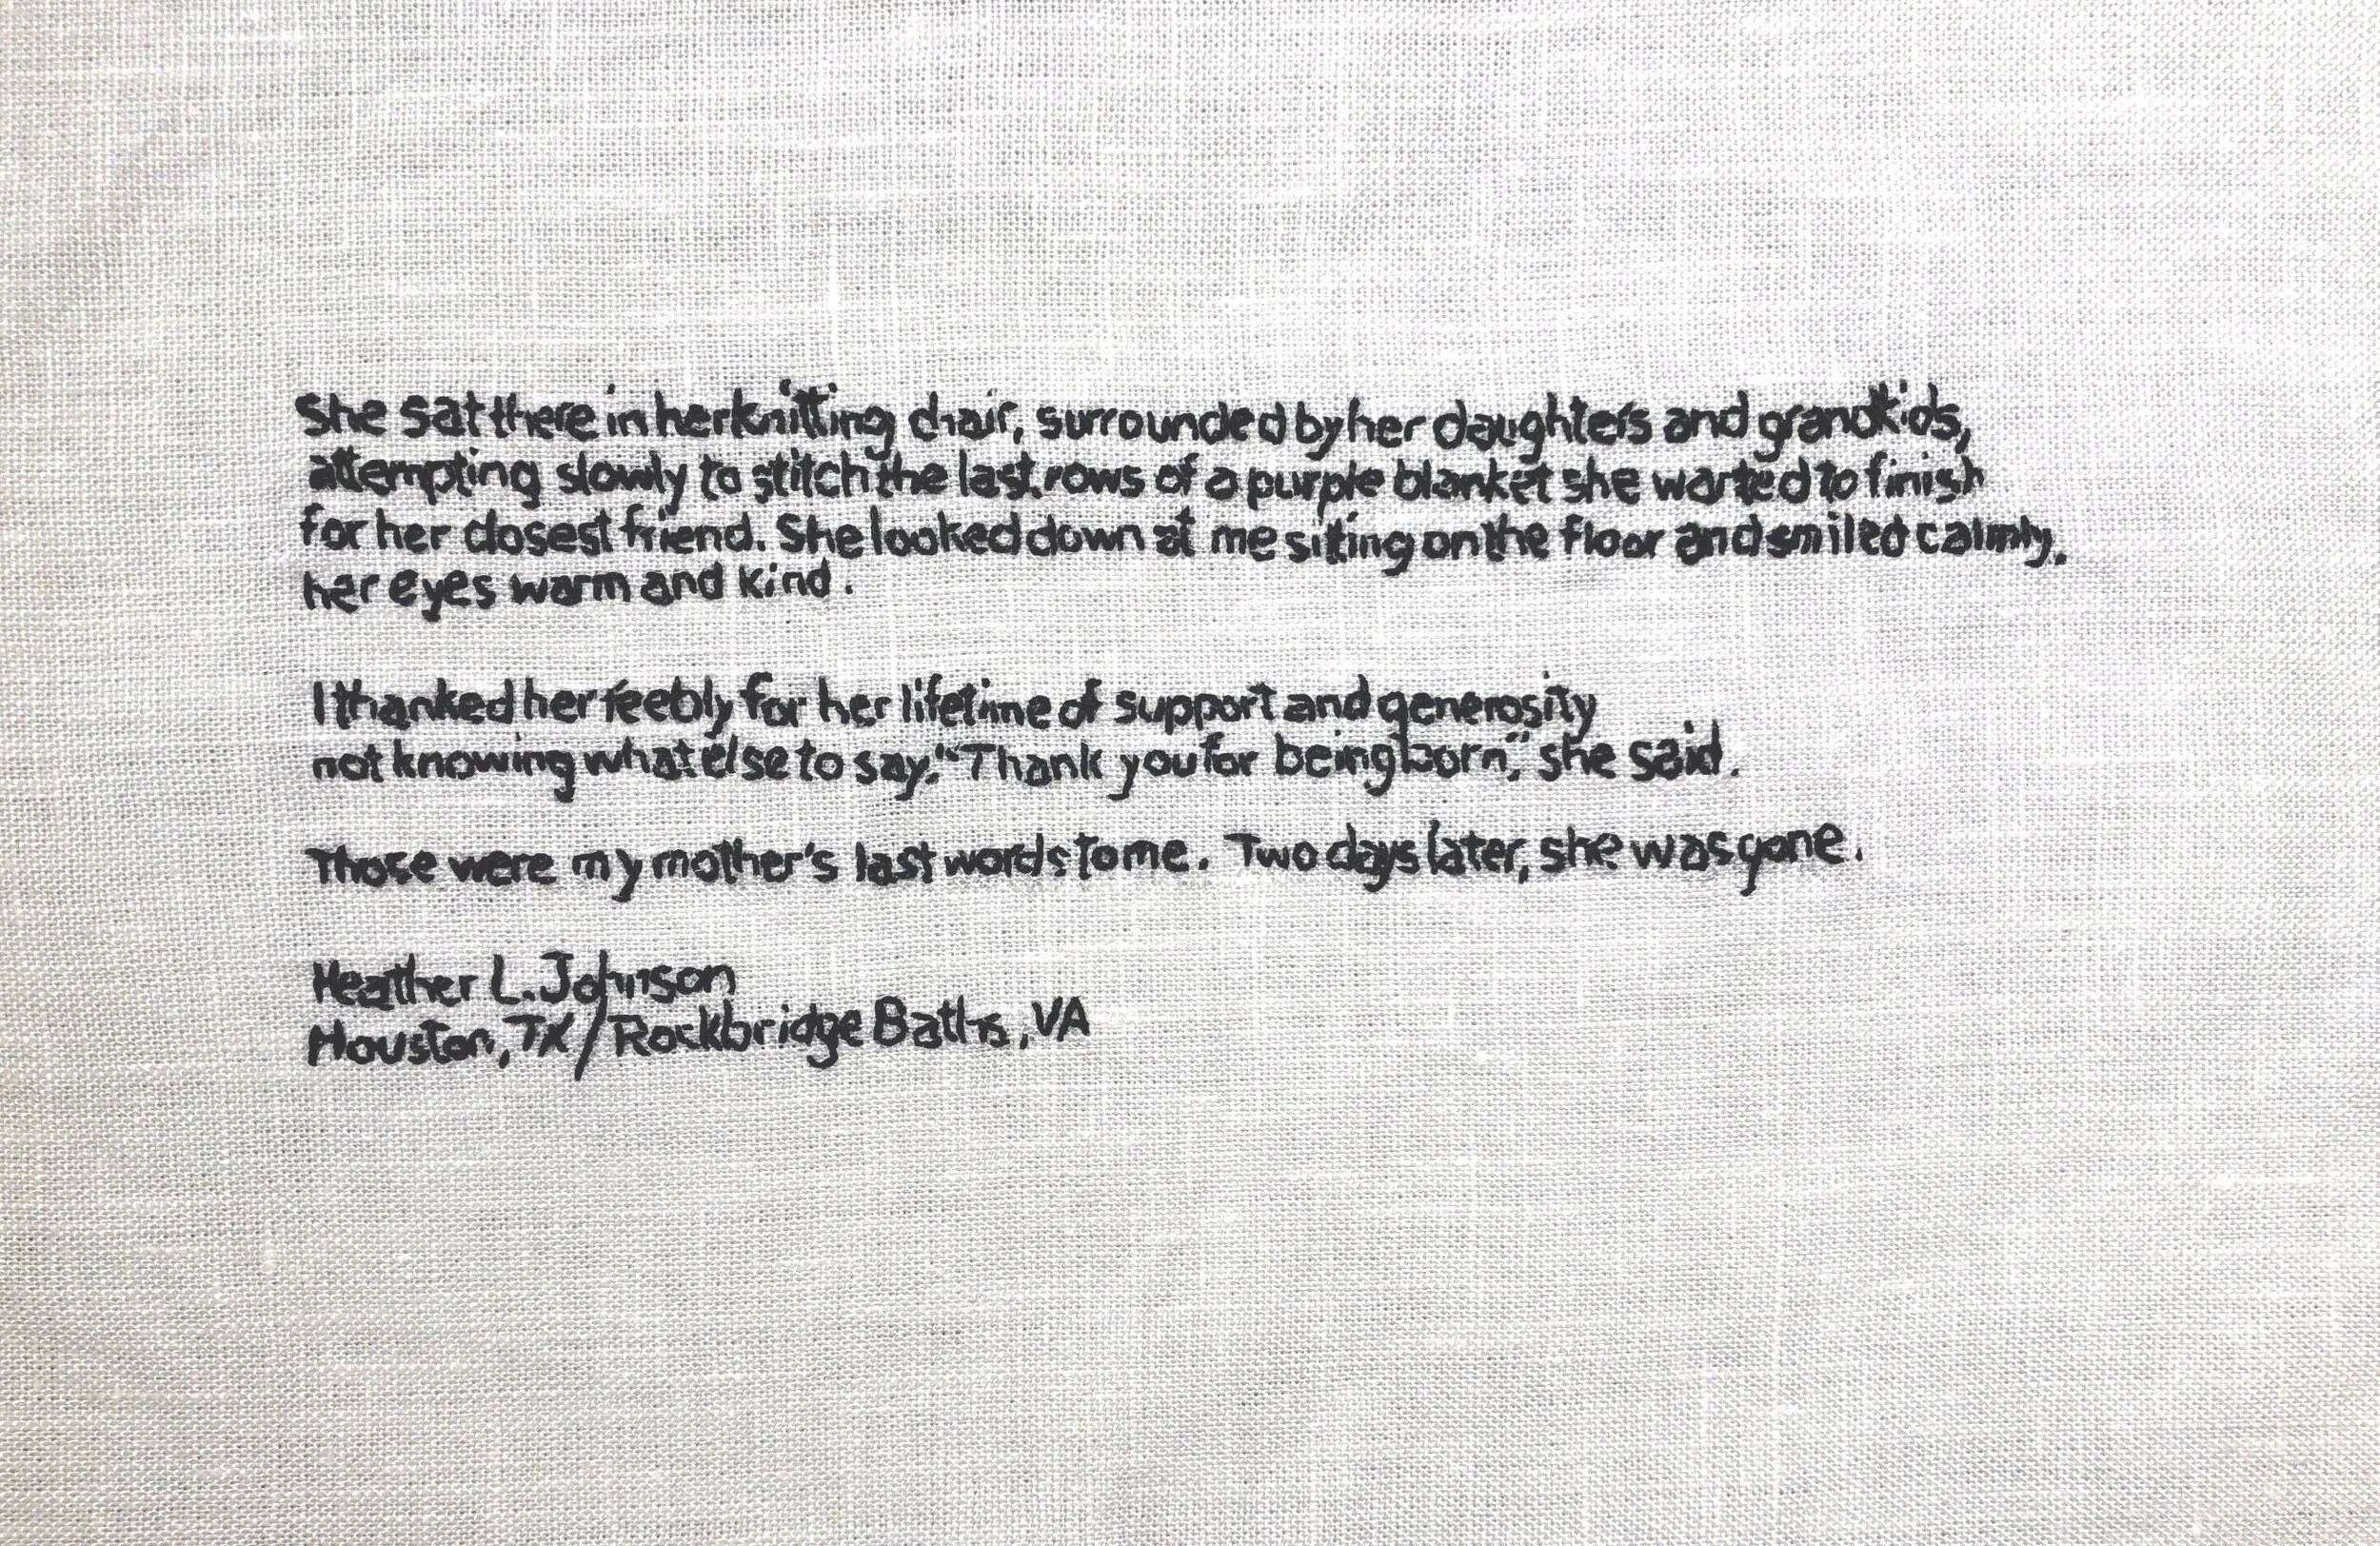 She sat there in her knitting chair, surrounded by her daughters and grandkids,
attempting slowly to stitch the last rows of a purple blanket she wanted to finish
for her closest friend. She looked down at me sitting on the floor and smiled calmly,
her eyes warm and kind.
I thanked her feebly for her lifetime of support and generosity
not knowing what else to say. "Thank you for being born," she said.
Those were my mother's last words to me. Two days later, she was gone.
Heather L. Johnson
Houston, TX / Rockbridge Baths, VA